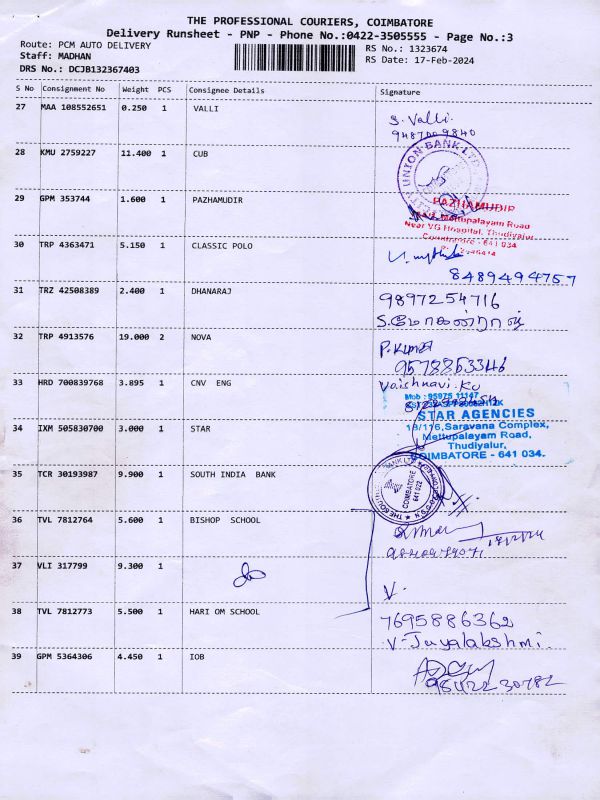 THE PROFESSIONAL COURIERS, COIMBATORE
Delivery Runsheet - PNP - Phone No.:0422-3505555 - Page No.:3
Route: PCM AUTO DELIVERY
RS No.: 1323674
Staff: MADHAN
RS Date: 17-Feb-2024
DRS No.: DCJB132367403
S No Consignment No Weight PCS Consignee Details Signature
27 MAA 108552651 0.250 1 VALLI
S. Valli.
9487009840
28 KMU 2759227 11.400 1 CUB
UNION BANK LTD
29 GPM 353744 1.600 1 PAZHAMUDIR
PAZHAMUDIR
Mettupalayam Road
Near VG Hospital, Thudiyalur
Coimbatore - 641 034
30 TRP 4363471 5.150 1 CLASSIC POLO
8489494757
31 TRZ 42508389 2.400 1 DHANARAJ
9897254716
32 TRP 4913576 19.000 2 NOVA
P. Kumar
9578853346
33 HRD 700839768 3.895 1 CNV ENG
Vaishnavi. Ku
Mob : 95975 11147
34 IXM 505830700 3.000 1 STAR
STAR AGENCIES
18/116, Saravana Complex,
Mettupalayam Road,
Thudiyalur,
COIMBATORE - 641 034.
35 TCR 30193987 9.900 1 SOUTH INDIA BANK
COIMBATORE
641 022
36 TVL 7812764 5.600 1 BISHOP SCHOOL
37 VLI 317799 9.300 1
V.
38 TVL 7812773 5.500 1 HARI OM SCHOOL
7695886362
V-Jayalakshmi.
39 GPM 5364306 4.450 1 IOB
9842230782